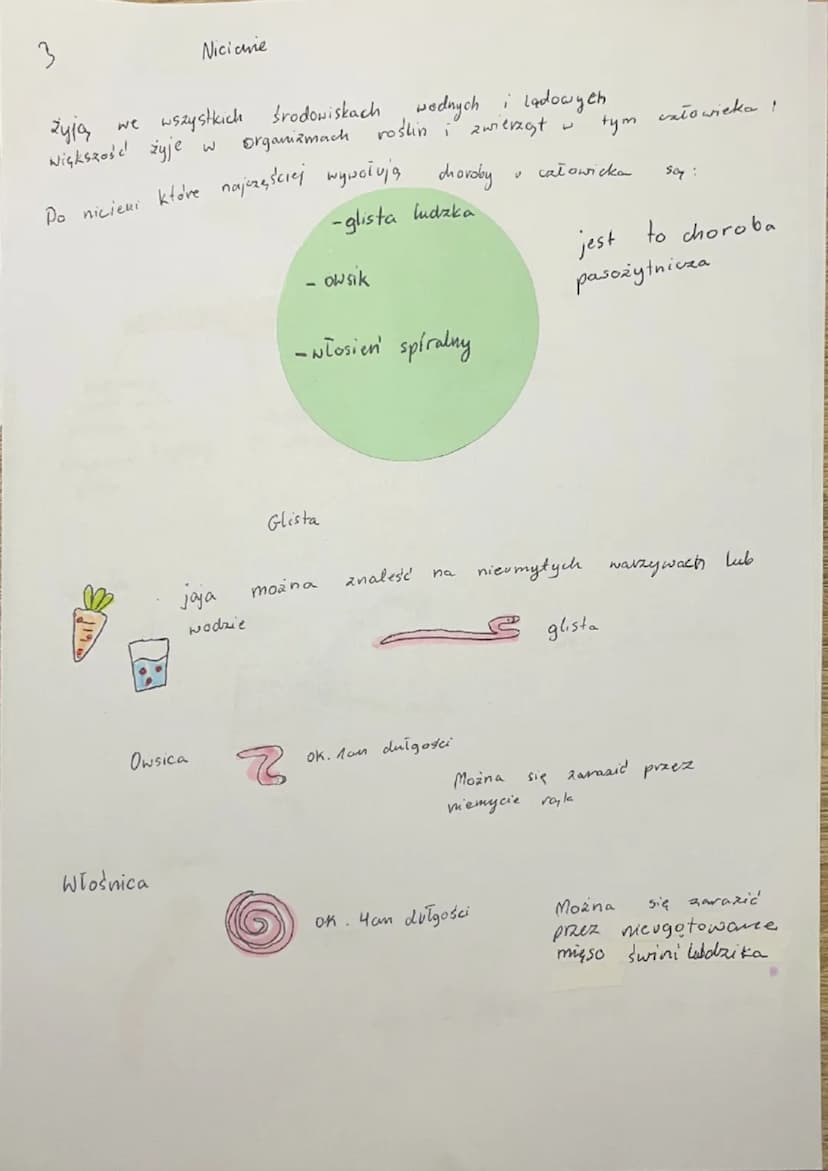 3
Nicienie
żyją we wszystkich środowiskach wodnych i lądowych
większość żyje w organizmach roślin i zwierząt w tym człowieka!
Do nicieni które najczęściej wywołują choroby u człowieka są:
-glista ludzka
- owsik
-włosień spiralny
jest to choroba
pasożytnicza
Glista
jaja można znaleść na nieumytych warzywach lub
wodzie
glista
Owsica
ok. 1cm dułgości
Można się zarazić przez
niemycie rąk
Włośnica
ok. 4cm dułgości
Można się zarazić
przez nieugotowane
mięso świni lub dzika